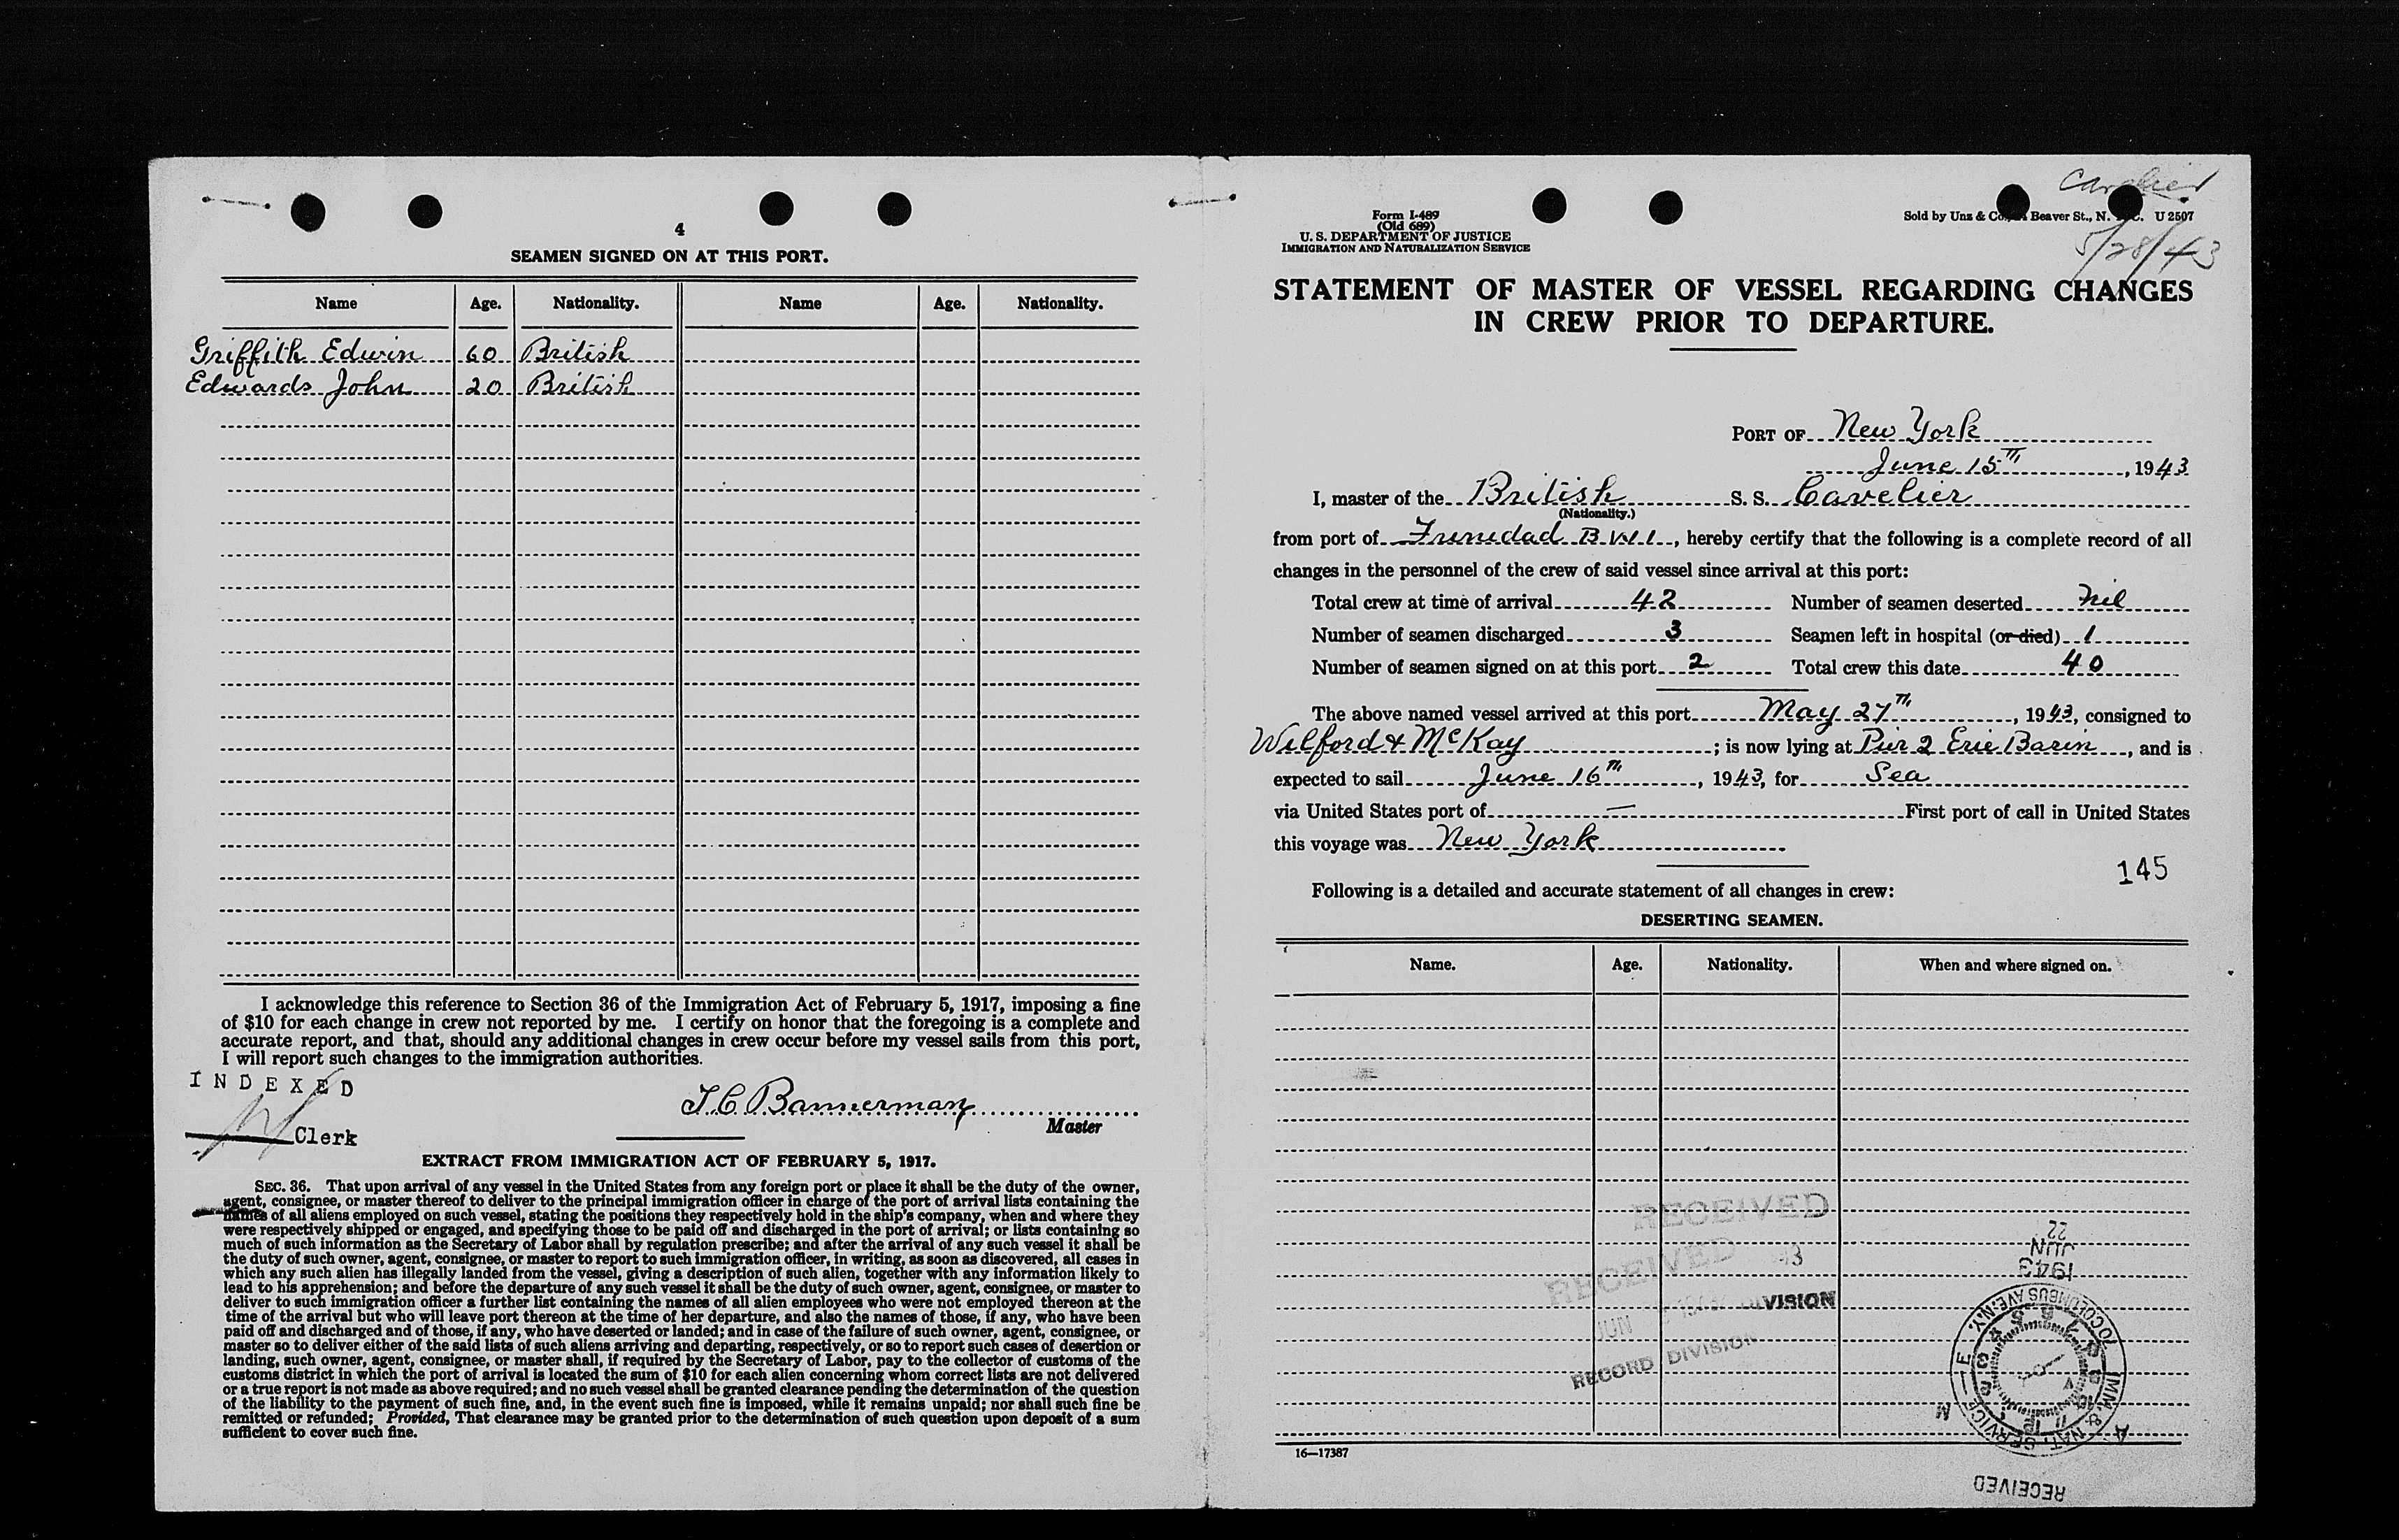 4
SEAMEN SIGNED ON AT THIS PORT.
Name Age. Nationality. Name Age. Nationality.
Griffith Edwin 60 British
Edwards John 20 British
I acknowledge this reference to Section 36 of the Immigration Act of February 5, 1917, imposing a fine
of $10 for each change in crew not reported by me. I certify on honor that the foregoing is a complete and
accurate report, and that, should any additional changes in crew occur before my vessel sails from this port,
I will report such changes to the immigration authorities.
INDEXED
Clerk
T. C. Bannerman
Master
EXTRACT FROM IMMIGRATION ACT OF FEBRUARY 5, 1917.
SEC. 36. That upon arrival of any vessel in the United States from any foreign port or place it shall be the duty of the owner,
agent, consignee, or master thereof to deliver to the principal immigration officer in charge of the port of arrival lists containing the
names of all aliens employed on such vessel, stating the positions they respectively hold in the ship's company, when and where they
were respectively shipped or engaged, and specifying those to be paid off and discharged in the port of arrival; or lists containing so
much of such information as the Secretary of Labor shall by regulation prescribe; and after the arrival of any such vessel it shall be
the duty of such owner, agent, consignee, or master to report to such immigration officer, in writing, as soon as discovered, all cases in
which any such alien has illegally landed from the vessel, giving a description of such alien, together with any information likely to
lead to his apprehension; and before the departure of any such vessel it shall be the duty of such owner, agent, consignee, or master to
deliver to such immigration officer a further list containing the names of all alien employees who were not employed thereon at the
time of the arrival but who will leave port thereon at the time of her departure, and also the names of those, if any, who have been
paid off and discharged and of those, if any, who have deserted or landed; and in case of the failure of such owner, agent, consignee, or
master so to deliver either of the said lists of such aliens arriving and departing, respectively, or so to report such cases of desertion or
landing, such owner, agent, consignee, or master shall, if required by the Secretary of Labor, pay to the collector of customs of the
customs district in which the port of arrival is located the sum of $10 for each alien concerning whom correct lists are not delivered
or a true report is not made as above required; and no such vessel shall be granted clearance pending the determination of the question
of the liability to the payment of such fine, and, in the event such fine is imposed, while it remains unpaid; nor shall such fine be
remitted or refunded; Provided, That clearance may be granted prior to the determination of such question upon deposit of a sum
sufficient to cover such fine.
Cavelier
Form I-489
(Old 689)
U. S. DEPARTMENT OF JUSTICE
IMMIGRATION AND NATURALIZATION SERVICE
Sold by Unz & Co., Beaver St., N. C. U 2507
5/28/43
STATEMENT OF MASTER OF VESSEL REGARDING CHANGES
IN CREW PRIOR TO DEPARTURE.
PORT OF New York
June 15TH, 1943
I, master of the British S. S. Cavelier
(Nationality.)
from port of Trinidad B.W.I., hereby certify that the following is a complete record of all
changes in the personnel of the crew of said vessel since arrival at this port:
Total crew at time of arrival 42 Number of seamen deserted Nil
Number of seamen discharged 3 Seamen left in hospital (or died) 1
Number of seamen signed on at this port 2 Total crew this date 40
The above named vessel arrived at this port May 27TH, 1943, consigned to
Wilford & McKay; is now lying at Pier 2 Erie Basin, and is
expected to sail June 16TH, 1943, for Sea
via United States port of — First port of call in United States
this voyage was New York
145
Following is a detailed and accurate statement of all changes in crew:
DESERTING SEAMEN.
Name. Age. Nationality. When and where signed on.
RECEIVED
RECEIVED
DIVISION
JUN
RECORD DIVISION
1943
JUN
22
IMM. & NAT. SERVICE
70 COLUMBUS AVE. N.Y.
16—17387
RECEIVED